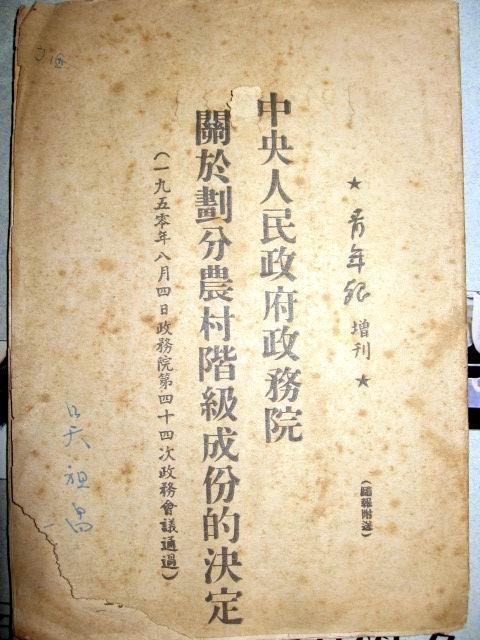 ★ 青年報 增刊 ★
(隨報附送)
中央人民政府政務院
關於劃分農村階級成份的決定
(一九五零年八月四日政務院第四十四次政務會議通過)
吴祖昌